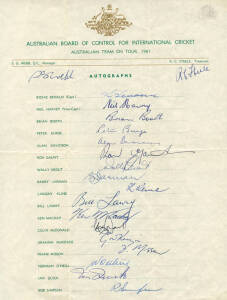 AUSTRALIAN BOARD OF CONTROL FOR INTERNATIONAL CRICKET
AUSTRALIAN TEAM ON TOUR, 1961
S. G. WEBB, Q.C., Manager R. C. STEELE, Treasurer
AUTOGRAPHS
RICHIE BENAUD (Capt.)
NEIL HARVEY (Vice-Capt.) Neil Harvey
BRIAN BOOTH Brian Booth
PETER BURGE Peter Burge
ALAN DAVIDSON
RON GAUNT
WALLY GROUT
BARRY JARMAN
LINDSAY KLINE
BILL LAWRY Bill Lawry
KEN MACKAY Ken Mackay
COLIN McDONALD
GRAHAM McKENZIE
FRANK MISSON
NORMAN O'NEILL
IAN QUICK Ian Quick
BOB SIMPSON